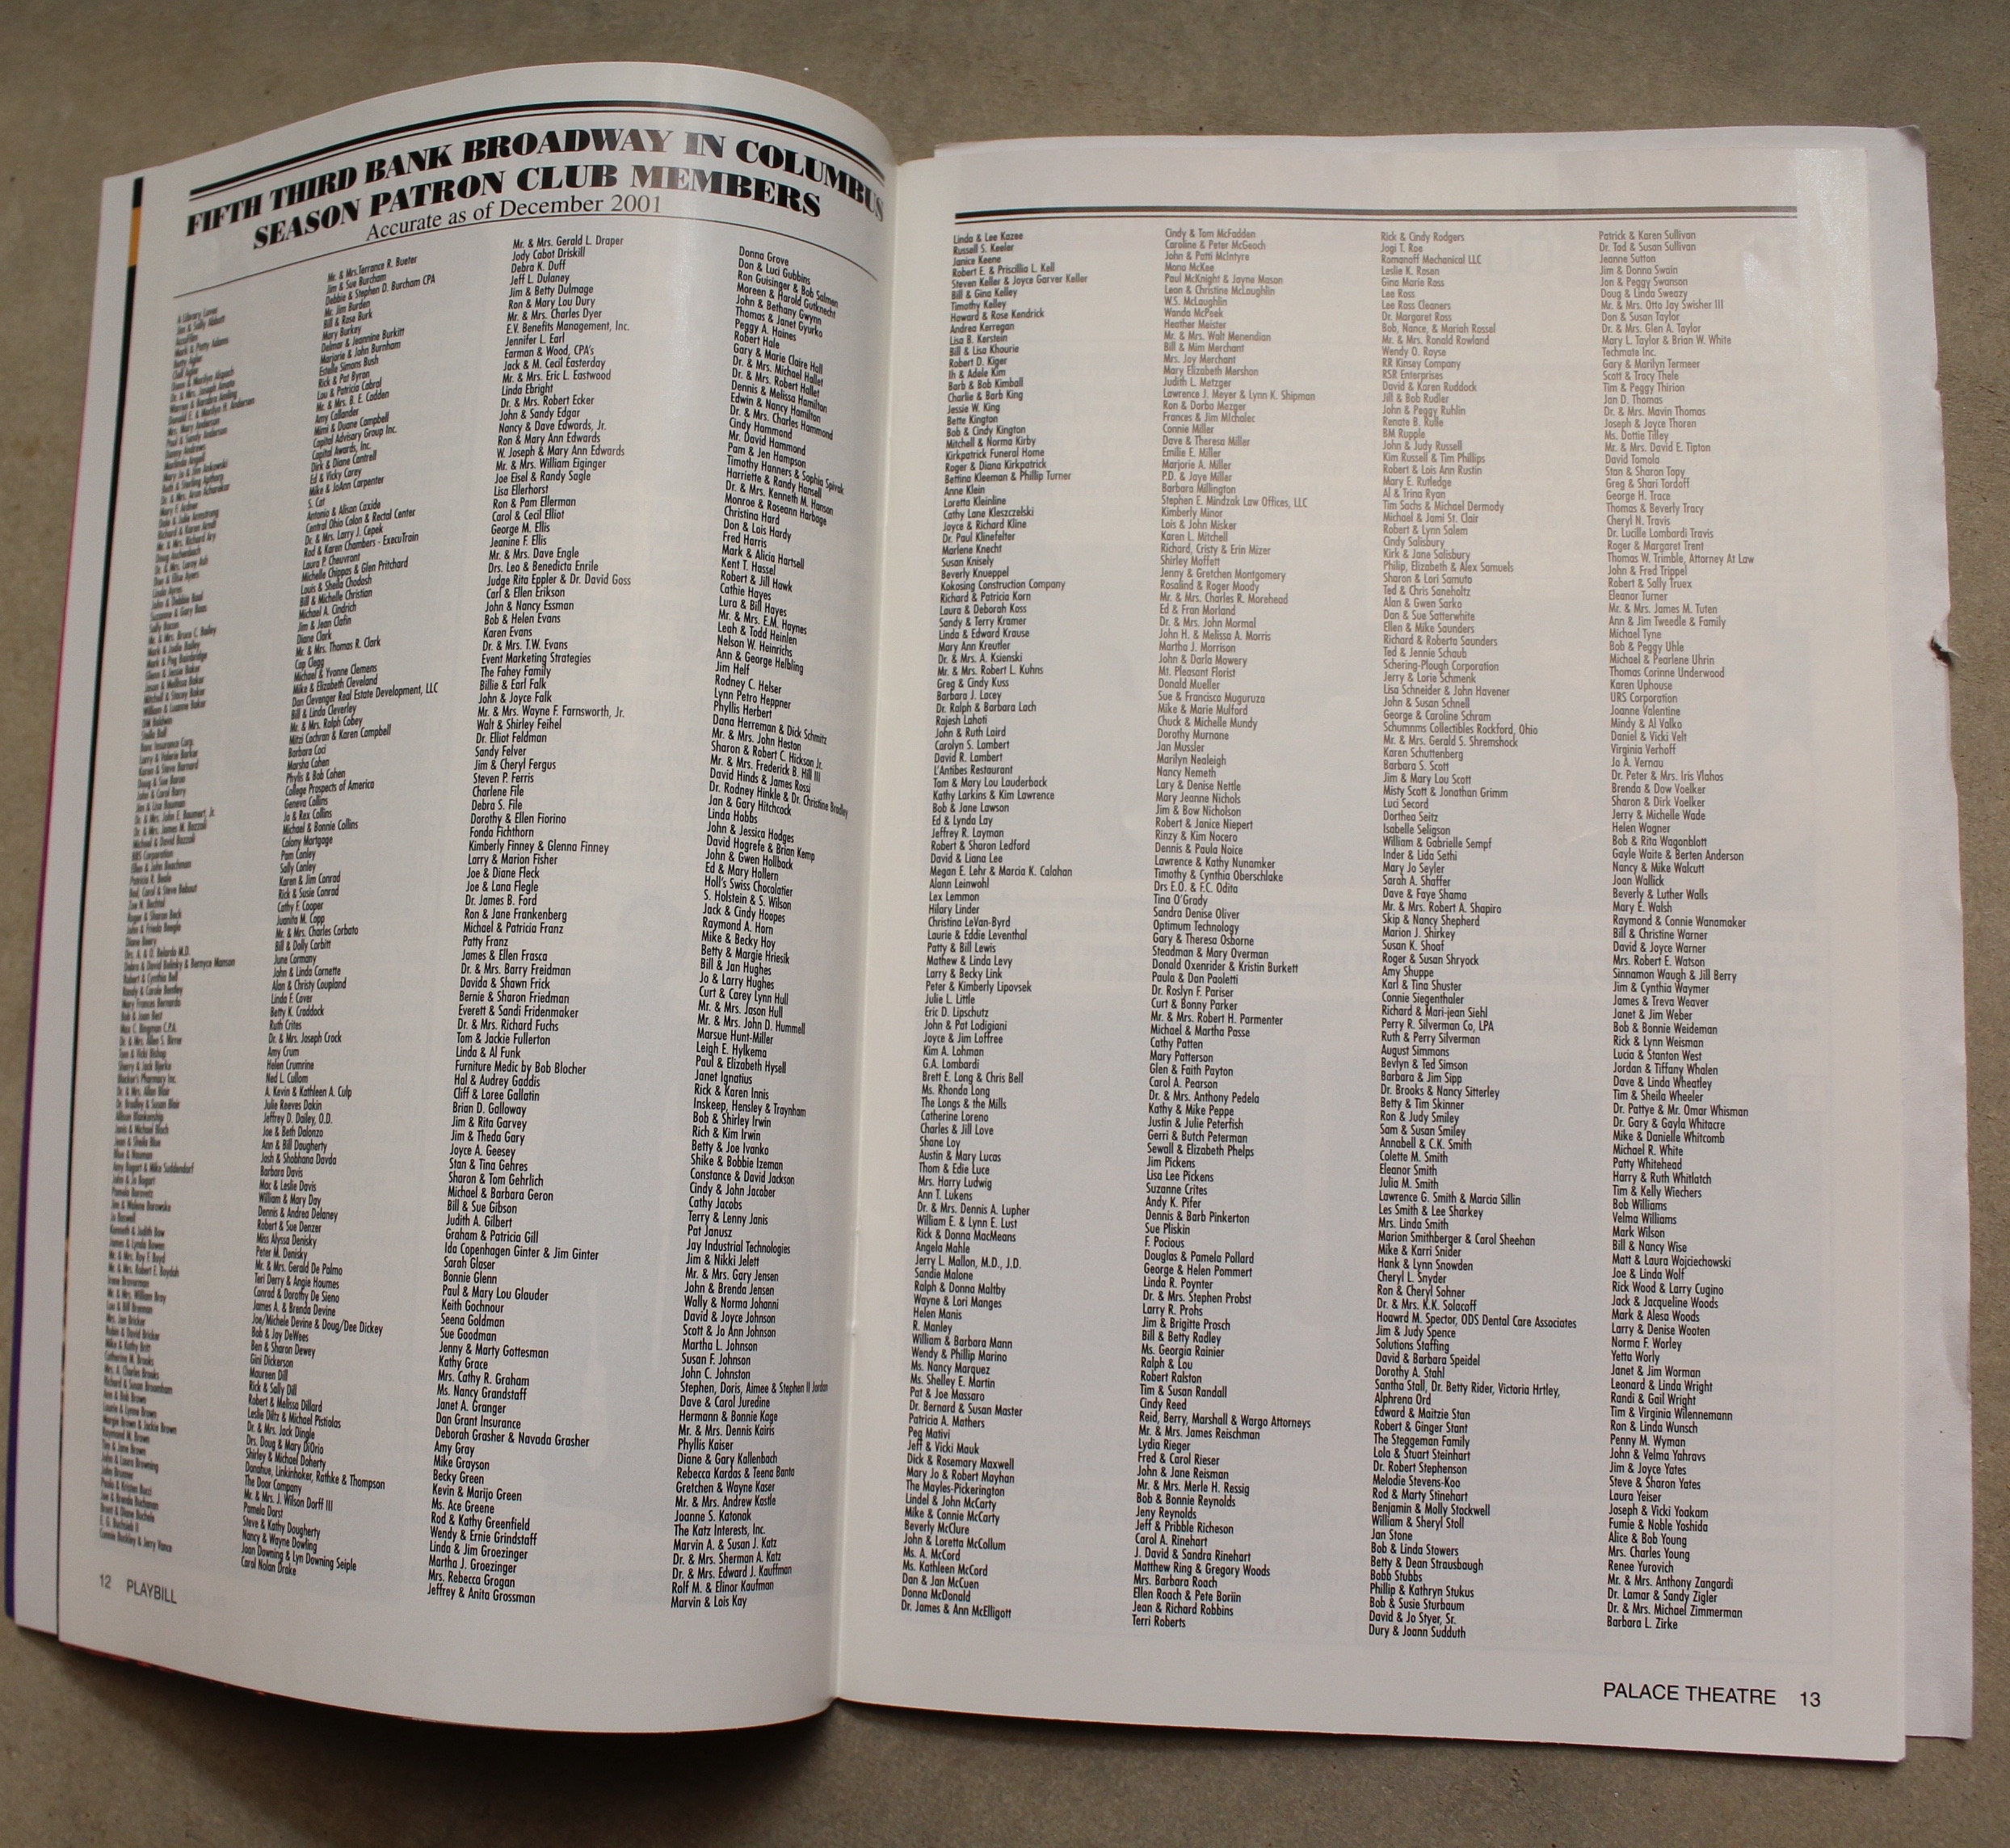 FIFTH THIRD BANK BROADWAY IN COLUMBUS
SEASON PATRON CLUB MEMBERS
Accurate as of December 2001
A Library Lover
Mark & Patty Adams
Betty Agler
Dr. & Mrs. Joseph Amato
Mrs. Mary Anderson
Paul & Sandy Anderson
Mary F. Ardner
Dale & Julie Armstrong
Richard & Karen Arndt
Mr. & Mrs. Richard Ary
Doug Aschenbach
Dr. & Mrs. Leroy Ash
Linda Ayres
John & Debbie Baal
Suzanne & Gary Baas
Sally Bacon
Mr. & Mrs. Bruce C. Bailey
Mark & Jodie Bailey
Mark & Peg Bainbridge
Glenn & Jessie Baker
Jason & Melissa Baker
Mitchell & Stacey Baker
William & Luanne Baker
DM Baldwin
Stella Ball
Banc Insurance Corp.
Larry & Valerie Barker
Karen & Steve Barnard
Doug & Sue Baron
John & Carol Barry
Jim & Lisa Bauman
Dr. & Mrs. John E. Baumert, Jr.
Dr. & Mrs. James M. Bazzoli
Michael & David Bazzoli
BBS Corporation
Ellen & John Beachman
Patricia R. Beale
Rod, Carol & Steve Bebout
Zoe N. Bechtel
Roger & Sharon Beck
John & Frieda Beegle
Diane Beery
Drs. A. & O. Belardo M.D.
Debra & David Belinky & Bernyce Monson
Robert & Cynthia Bell
Randy & Carole Bentley
Mary Frances Bernardo
Bob & Joan Best
Max C. Bingman C.P.A.
Dr. & Mrs. Allen S. Birrer
Tom & Vicki Bishop
Sherry & Jack Bjerke
Blacker's Pharmacy Inc.
Dr. & Mrs. Allan Blair
Dr. Bradley & Susan Blair
Allison Blankenship
Janis & Michael Bloch
Jean & Sheila Blue
Blue & Nauman
Amy Bogart & Mike Suddendorf
John & Jo Bogart
Pamela Borovetz
Jim & Walene Borowska
Jo Boswell
Kenneth & Judith Bow
James & Lynda Bowen
Mr. & Mrs. Roy F. Boyd
Mr. & Mrs. Robert E. Boydoh
Irene Braverman
Mr. & Mrs. William Bray
Lou & Bill Brennan
Mrs. Jan Bricker
Robin & David Bricker
Mike & Kathy Britt
Catherine M. Brooks
Mrs. A. Charles Brooks
Richard & Susan Brownham
Ann & Bob Brown
Laurie & Lynne Brown
Margie Brown & Jackie Brown
Raymond M. Brown
Tim & Jane Brown
John & Laura Browning
John Brunner
Paula & Kristen Bucci
Joe & Brenda Buchanan
Brent & Diane Buchele
E. G. Buchsieb II
Connie Buckley & Jerry Vance
Mr. & Mrs.Terrance R. Bueter
Jim & Sue Burcham
Debbie & Stephen D. Burcham CPA
Mr. Jim Burden
Bill & Rose Burk
Mary Burkey
Delmar & Jeannine Burkitt
Marjorie & John Burnham
Estelle Simons Bush
Rick & Pat Byran
Lou & Patricia Cabral
Mr. & Mrs. B. E. Cadden
Amy Callander
Mimi & Duane Campbell
Capital Advisory Group Inc.
Capital Awards, Inc.
Dirk & Diane Cantrell
Ed & Vicky Carey
Mike & JoAnn Carpenter
S. Cat
Antonio & Alison Caxide
Central Ohio Colon & Rectal Center
Dr. & Mrs. Larry J. Cepek
Rod & Karen Chambers - ExecuTrain
Laura P. Cheuvront
Michelle Chippas & Glen Pritchard
Louis & Sheila Chodosh
Bill & Michelle Christian
Michael A. Cindrich
Jim & Jean Claflin
Diane Clark
Mr. & Mrs. Thomas R. Clark
Cap Clegg
Michael & Yvonne Clemens
Mike & Elizabeth Cleveland
Dan Clevenger Real Estate Development, LLC
Bill & Linda Cleverley
Mr. & Mrs. Ralph Cobey
Mitzi Cochran & Karen Campbell
Barbara Coci
Marsha Cohen
Phylis & Bob Cohen
College Prospects of America
Geneva Collins
Jo & Rex Collins
Michael & Bonnie Collins
Colony Mortgage
Pam Conley
Sally Conley
Karen & Jim Conrad
Rick & Susie Conrad
Cathy F. Cooper
Juanita M. Copp
Mr. & Mrs. Charles Corbato
Bill & Dolly Corbitt
June Cormany
John & Linda Cornette
Alan & Christy Coupland
Linda F. Cover
Betty K. Craddock
Ruth Crites
Dr. & Mrs. Joseph Crock
Amy Crum
Helen Crumrine
Ned L. Cullom
A. Kevin & Kathleen A. Culp
Julie Reeves Dakin
Jeffrey D. Dailey, O.D.
Joe & Beth Dalonzo
Ann & Bill Daugherty
Jash & Shobhana Davda
Barbara Davis
Mac & Leslie Davis
William & Mary Day
Dennis & Andrea Delaney
Robert & Sue Denzer
Miss Alyssa Denisky
Peter M. Denisky
Mr. & Mrs. Gerald De Palmo
Teri Derry & Angie Houmes
Conrad & Dorothy De Sieno
James A. & Brenda Devine
Joe/Michele Devine & Doug/Dee Dickey
Bob & Jay DeWees
Ben & Sharon Dewey
Gini Dickerson
Maureen Dill
Rick & Sally Dill
Robert & Melissa Dillard
Leslie Diltz & Michael Pistiolas
Dr. & Mrs. Jack Dingle
Drs. Doug & Mary DiOrio
Shirley & Michael Doherty
Donahue, Linkinhoker, Rathke & Thompson
The Door Company
Mr. & Mrs. J. Wilson Dorff III
Pamela Dorst
Steve & Kathy Dougherty
Nancy & Wayne Dowling
Joan Downing & Lyn Downing Seiple
Carol Nolan Drake
Mr. & Mrs. Gerald L. Draper
Jody Cabot Driskill
Debra K. Duff
Jeff L. Dulaney
Jim & Betty Dulmage
Ron & Mary Lou Dury
Mr. & Mrs. Charles Dyer
E.V. Benefits Management, Inc.
Jennifer L. Earl
Earman & Wood, CPA's
Jack & M. Cecil Easterday
Mr. & Mrs. Eric L. Eastwood
Linda Ebright
Dr. & Mrs. Robert Ecker
John & Sandy Edgar
Nancy & Dave Edwards, Jr.
Ron & Mary Ann Edwards
W. Joseph & Mary Ann Edwards
Mr. & Mrs. William Eiginger
Joe Eisel & Randy Sagle
Lisa Ellerhorst
Ron & Pam Ellerman
Carol & Cecil Elliot
George M. Ellis
Jeanine F. Ellis
Mr. & Mrs. Dave Engle
Drs. Leo & Benedicta Enrile
Judge Rita Eppler & Dr. David Goss
Carl & Ellen Erikson
John & Nancy Essman
Bob & Helen Evans
Karen Evans
Dr. & Mrs. T.W. Evans
Event Marketing Strategies
The Fahey Family
Billie & Earl Falk
John & Joyce Falk
Mr. & Mrs. Wayne F. Farnsworth, Jr.
Walt & Shirley Feihel
Dr. Elliot Feldman
Sandy Felver
Jim & Cheryl Fergus
Steven P. Ferris
Charlene File
Debra S. File
Dorothy & Ellen Fiorino
Fonda Fichthorn
Kimberly Finney & Glenna Finney
Larry & Marion Fisher
Joe & Diane Fleck
Joe & Lana Flegle
Dr. James B. Ford
Ron & Jane Frankenberg
Michael & Patricia Franz
Patty Franz
James & Ellen Frasca
Dr. & Mrs. Barry Freidman
Davida & Shawn Frick
Bernie & Sharon Friedman
Everett & Sandi Fridenmaker
Dr. & Mrs. Richard Fuchs
Tom & Jackie Fullerton
Linda & Al Funk
Furniture Medic by Bob Blocher
Hal & Audrey Gaddis
Cliff & Loree Gallatin
Brian D. Galloway
Jim & Rita Garvey
Jim & Theda Gary
Joyce A. Geesey
Stan & Tina Gehres
Sharon & Tom Gehrlich
Michael & Barbara Geron
Bill & Sue Gibson
Judith A. Gilbert
Graham & Patricia Gill
Ida Copenhagen Ginter & Jim Ginter
Sarah Glaser
Bonnie Glenn
Paul & Mary Lou Glauder
Keith Gochnour
Seena Goldman
Sue Goodman
Jenny & Marty Gottesman
Kathy Grace
Mrs. Cathy R. Graham
Ms. Nancy Grandstaff
Janet A. Granger
Dan Grant Insurance
Deborah Grasher & Navada Grasher
Amy Gray
Mike Grayson
Becky Green
Kevin & Marijo Green
Ms. Ace Greene
Rod & Kathy Greenfield
Wendy & Ernie Grindstaff
Linda & Jim Groezinger
Martha J. Groezinger
Mrs. Rebecca Grogan
Jeffrey & Anita Grossman
Donna Grove
Don & Luci Gubbins
Ron Guisinger & Bob Salmen
Moreen & Harold Gutknecht
John & Bethany Gwynn
Thomas & Janet Gyurko
Peggy A. Haines
Robert Hale
Gary & Marie Claire Hall
Dr. & Mrs. Michael Hallet
Dr. & Mrs. Robert Hallet
Dennis & Melissa Hamilton
Edwin & Nancy Hamilton
Dr. & Mrs. Charles Hammond
Cindy Hammond
Mr. David Hammond
Pam & Jen Hampson
Timothy Hanners & Sophia Spivak
Harriette & Randy Hansell
Dr. & Mrs. Kenneth M. Hanson
Monroe & Roseann Harbage
Christina Hard
Don & Lois Hardy
Fred Harris
Mark & Alicia Hartsell
Kent T. Hassel
Robert & Jill Hawk
Cathie Hayes
Lura & Bill Hayes
Mr. & Mrs. E.M. Haynes
Leah & Todd Heinlen
Nelson W. Heinrichs
Ann & George Helbling
Jim Helf
Rodney C. Helser
Lynn Petro Heppner
Phyllis Herbert
Dana Herreman & Dick Schmitz
Mr. & Mrs. John Heston
Sharon & Robert C. Hickson Jr.
Mr. & Mrs. Frederick B. Hill III
David Hinds & James Rossi
Dr. Rodney Hinkle & Dr. Christine Bradley
Jan & Gary Hitchcock
Linda Hobbs
John & Jessica Hodges
David Hogrefe & Brian Kemp
John & Gwen Hollback
Ed & Mary Hollern
Holl's Swiss Chocolatier
S. Holstein & S. Wilson
Jack & Cindy Hoopes
Raymond A. Horn
Mike & Becky Hoy
Betty & Margie Hriesik
Bill & Jan Hughes
Jo & Larry Hughes
Curt & Carey Lynn Hull
Mr. & Mrs. Jason Hull
Mr. & Mrs. John D. Hummell
Marsue Hunt-Miller
Leigh E. Hylkema
Paul & Elizabeth Hysell
Janet Ignatius
Rick & Karen Innis
Inskeep, Hensley & Traynham
Bob & Shirley Irwin
Rich & Kim Irwin
Betty & Joe Ivanko
Shike & Bobbie Izeman
Constance & David Jackson
Cindy & John Jacober
Cathy Jacobs
Terry & Lenny Janis
Pat Janusz
Jay Industrial Technologies
Jim & Nikki Jelett
Mr. & Mrs. Gary Jensen
John & Brenda Jensen
Wally & Norma Johanni
David & Joyce Johnson
Scott & Jo Ann Johnson
Martha L. Johnson
Susan F. Johnson
John C. Johnston
Stephen, Doris, Aimee & Stephen II Jordan
Dave & Carol Juredine
Hermann & Bonnie Kage
Mr. & Mrs. Dennis Kairis
Phyllis Kaiser
Diane & Gary Kallenbach
Rebecca Kardas & Teena Banta
Gretchen & Wayne Kaser
Mr. & Mrs. Andrew Kastle
Joanne S. Katonak
The Katz Interests, Inc.
Marvin A. & Susan J. Katz
Dr. & Mrs. Sherman A. Katz
Dr. & Mrs. Edward J. Kauffman
Rolf M. & Elinor Kaufman
Marvin & Lois Kay
12 PLAYBILL
Linda & Lee Kazee
Russell S. Keeler
Janice Keene
Robert E. & Priscillia L. Kell
Steven Keller & Joyce Garver Keller
Bill & Gina Kelley
Timothy Kelley
Howard & Rose Kendrick
Andrea Kerregan
Lisa B. Kerstein
Bill & Lisa Khourie
Robert D. Kiger
Ih & Adele Kim
Barb & Bob Kimball
Charlie & Barb King
Jessie W. King
Bette Kington
Bob & Cindy Kington
Mitchell & Norma Kirby
Kirkpatrick Funeral Home
Roger & Diana Kirkpatrick
Bettina Kleeman & Phillip Turner
Anne Klein
Loretta Kleinline
Cathy Lane Kleszczelski
Joyce & Richard Kline
Dr. Paul Klinefelter
Marlene Knecht
Susan Knisely
Beverly Knueppel
Kokosing Construction Company
Richard & Patricia Korn
Laura & Deborah Koss
Sandy & Terry Kramer
Linda & Edward Krause
Mary Ann Kreutler
Dr. & Mrs. A. Ksienski
Mr. & Mrs. Robert L. Kuhns
Greg & Cindy Kuss
Barbara J. Lacey
Dr. Ralph & Barbara Lach
Rajesh Lahoti
John & Ruth Laird
Carolyn S. Lambert
David R. Lambert
L'Antibes Restaurant
Tom & Mary Lou Lauderback
Kathy Larkins & Kim Lawrence
Bob & Jane Lawson
Ed & Lynda Lay
Jeffrey R. Layman
Robert & Sharon Ledford
David & Liana Lee
Megan E. Lehr & Marcia K. Calahan
Alann Leinwohl
Lex Lemmon
Hilary Linder
Christina LeVan-Byrd
Laurie & Eddie Leventhal
Patty & Bill Lewis
Mathew & Linda Levy
Larry & Becky Link
Peter & Kimberly Lipovsek
Julie L. Little
Eric D. Lipschutz
John & Pat Lodigiani
Joyce & Jim Loffree
Kim A. Lohman
G.A. Lombardi
Brett E. Long & Chris Bell
Ms. Rhonda Long
The Longs & the Mills
Catherine Loreno
Charles & Jill Love
Shane Loy
Austin & Mary Lucas
Thom & Edie Luce
Mrs. Harry Ludwig
Ann T. Lukens
Dr. & Mrs. Dennis A. Lupher
William E. & Lynn E. Lust
Rick & Donna MacMeans
Angela Mahle
Jerry L. Mallon, M.D., J.D.
Sandie Malone
Ralph & Donna Maltby
Wayne & Lori Manges
Helen Manis
R. Manley
William & Barbara Mann
Wendy & Phillip Marino
Ms. Nancy Marquez
Ms. Shelley E. Martin
Pat & Joe Massaro
Dr. Bernard & Susan Master
Patricia A. Mathers
Peg Mativi
Jeff & Vicki Mauk
Dick & Rosemary Maxwell
Mary Jo & Robert Mayhan
The Mayles-Pickerington
Lindel & John McCarty
Mike & Connie McCarty
Beverly McClure
John & Loretta McCollum
Ms. A. McCord
Ms. Kathleen McCord
Dan & Jan McCuen
Donna McDonald
Dr. James & Ann McElligott
Cindy & Tom McFadden
Caroline & Peter McGeoch
John & Patti McIntyre
Mona McKee
Paul McKnight & Jayne Mason
Leon & Christine McLaughlin
W.S. McLaughlin
Wanda McPeek
Heather Meister
Mr. & Mrs. Walt Menendian
Bill & Mim Merchant
Mrs. Joy Merchant
Mary Elizabeth Mershon
Judith L. Metzger
Lawrence J. Meyer & Lynn K. Shipman
Ron & Dorba Mezger
Frances & Jim Michalec
Connie Miller
Dave & Theresa Miller
Emilie E. Miller
Marjorie A. Miller
P.D. & Jaye Miller
Barbara Millington
Stephen E. Mindzak Law Offices, LLC
Kimberly Minor
Lois & John Misker
Karen L. Mitchell
Richard, Cristy & Erin Mizer
Shirley Moffett
Jenny & Gretchen Montgomery
Rosalind & Roger Moody
Mr. & Mrs. Charles R. Morehead
Ed & Fran Morland
Dr. & Mrs. John Mormal
John H. & Melissa A. Morris
Martha J. Morrison
John & Darla Mowery
Mt. Pleasant Florist
Donald Mueller
Sue & Francisco Muguruza
Mike & Marie Mulford
Chuck & Michelle Mundy
Dorothy Murnane
Jan Mussler
Marilyn Nealeigh
Nancy Nemeth
Lary & Denise Nettle
Mary Jeanne Nichols
Jim & Bow Nicholson
Robert & Janice Niepert
Rinzy & Kim Nocero
Dennis & Paula Noice
Lawrence & Kathy Nunamker
Timothy & Cynthia Oberschlake
Drs E.O. & F.C. Odita
Tina O'Grady
Sandra Denise Oliver
Optimum Technology
Gary & Theresa Osborne
Steadman & Mary Overman
Donald Oxenrider & Kristin Burkett
Paula & Dan Paoletti
Dr. Roslyn F. Pariser
Curt & Bonny Parker
Mr. & Mrs. Robert H. Parmenter
Michael & Martha Passe
Cathy Patten
Mary Patterson
Glen & Faith Payton
Carol A. Pearson
Dr. & Mrs. Anthony Pedela
Kathy & Mike Peppe
Justin & Julie Peterfish
Gerri & Butch Peterman
Sewall & Elizabeth Phelps
Jim Pickens
Lisa Lee Pickens
Suzanne Crites
Andy K. Pifer
Dennis & Barb Pinkerton
Sue Pliskin
F. Pocious
Douglas & Pamela Pollard
George & Helen Pommert
Linda R. Poynter
Dr. & Mrs. Stephen Probst
Larry R. Prohs
Jim & Brigitte Prosch
Bill & Betty Radley
Ms. Georgia Rainier
Ralph & Lou
Robert Ralston
Tim & Susan Randall
Cindy Reed
Reid, Berry, Marshall & Wargo Attorneys
Mr. & Mrs. James Reischman
Lydia Rieger
Fred & Carol Rieser
John & Jane Reisman
Mr. & Mrs. Merle H. Ressig
Bob & Bonnie Reynolds
Jeny Reynolds
Jeff & Pribble Richeson
Carol A. Rinehart
J. David & Sandra Rinehart
Matthew Ring & Gregory Woods
Mrs. Barbara Roach
Ellen Roach & Pete Boriin
Jean & Richard Robbins
Terri Roberts
Rick & Cindy Rodgers
Jogi T. Roe
Romanoff Mechanical LLC
Leslie K. Rosen
Gina Marie Ross
Lee Ross
Lee Ross Cleaners
Dr. Margaret Ross
Bob, Nance, & Mariah Rossel
Mr. & Mrs. Ronald Rowland
Wendy O. Royse
RR Kinsey Company
RSR Enterprises
David & Karen Ruddock
Jill & Bob Rudler
John & Peggy Ruhlin
Renate B. Rulle
BM Rupple
John & Judy Russell
Kim Russell & Tim Phillips
Robert & Lois Ann Rustin
Mary E. Rutledge
Al & Trina Ryan
Tim Sachs & Michael Dermody
Michael & Jami St. Clair
Robert & Lynn Salem
Cindy Salisbury
Kirk & Jane Salisbury
Philip, Elizabeth & Alex Samuels
Sharon & Lori Samuto
Ted & Chris Saneholtz
Alan & Gwen Sarko
Dan & Sue Satterwhite
Ellen & Mike Saunders
Richard & Roberta Saunders
Ted & Jennie Schaub
Schering-Plough Corporation
Jerry & Lorie Schmenk
Lisa Schneider & John Havener
John & Susan Schnell
George & Caroline Schram
Schummms Collectibles Rockford, Ohio
Mr. & Mrs. Gerald S. Shremshock
Karen Schuttenberg
Barbara S. Scott
Jim & Mary Lou Scott
Misty Scott & Jonathan Grimm
Luci Secord
Dorthea Seitz
Isabelle Seligson
William & Gabrielle Sempf
Inder & Lida Sethi
Mary Jo Seyler
Sarah A. Shaffer
Dave & Faye Shama
Mr. & Mrs. Robert A. Shapiro
Skip & Nancy Shepherd
Marion J. Shirkey
Susan K. Shoaf
Roger & Susan Shryock
Amy Shuppe
Karl & Tina Shuster
Connie Siegenthaler
Richard & Mari-jean Siehl
Perry R. Silverman Co, LPA
Ruth & Perry Silverman
August Simmons
Bevlyn & Ted Simson
Barbara & Jim Sipp
Dr. Brooks & Nancy Sitterley
Betty & Tim Skinner
Ron & Judy Smiley
Sam & Susan Smiley
Annabell & C.K. Smith
Colette M. Smith
Eleanor Smith
Julia M. Smith
Lawrence G. Smith & Marcia Sillin
Les Smith & Lee Sharkey
Mrs. Linda Smith
Marion Smithberger & Carol Sheehan
Mike & Karri Snider
Hank & Lynn Snowden
Cheryl L. Snyder
Ron & Cheryl Sohner
Dr. & Mrs. K.K. Solacoff
Hoawrd M. Spector, ODS Dental Care Associates
Jim & Judy Spence
Solutions Staffing
David & Barbara Speidel
Dorothy A. Stahl
Santha Stall, Dr. Betty Rider, Victoria Hrtley,
Alphrena Ord
Edward & Maitzie Stan
Robert & Ginger Stant
The Steggeman Family
Lola & Stuart Steinhart
Dr. Robert Stephenson
Melodie Stevens-Koa
Rod & Marty Stinehart
Benjamin & Molly Stockwell
William & Sheryl Stoll
Jan Stone
Bob & Linda Stowers
Betty & Dean Strausbaugh
Bobb Stubbs
Phillip & Kathryn Stukus
Bob & Susie Sturbaum
David & Jo Styer, Sr.
Dury & Joann Sudduth
Patrick & Karen Sullivan
Dr. Tad & Susan Sullivan
Jeanne Sutton
Jim & Donna Swain
Jon & Peggy Swanson
Doug & Linda Sweazy
Mr. & Mrs. Otto Jay Swisher III
Don & Susan Taylor
Dr. & Mrs. Glen A. Taylor
Mary L. Taylor & Brian W. White
Techmate Inc.
Gary & Marilyn Termeer
Scott & Tracy Thele
Tim & Peggy Thirion
Jan D. Thomas
Dr. & Mrs. Mavin Thomas
Joseph & Joyce Thoren
Ms. Dottie Tilley
Mr. & Mrs. David E. Tipton
David Tomola
Stan & Sharon Topy
Greg & Shari Tordoff
George H. Trace
Thomas & Beverly Tracy
Cheryl N. Travis
Dr. Lucille Lombardi Travis
Roger & Margaret Trent
Thomas W. Trimble, Attorney At Law
John & Fred Trippel
Robert & Sally Truex
Eleanor Turner
Mr. & Mrs. James M. Tuten
Ann & Jim Tweedle & Family
Michael Tyne
Bob & Peggy Uhle
Michael & Pearlene Uhrin
Thomas Corinne Underwood
Karen Uphouse
URS Corporation
Joanne Valentine
Mindy & Al Valko
Daniel & Vicki Velt
Virginia Verhoff
Jo A. Vernau
Dr. Peter & Mrs. Iris Vlahos
Brenda & Dow Voelker
Sharon & Dirk Voelker
Jerry & Michelle Wade
Helen Wagner
Bob & Rita Wagonblott
Gayle Waite & Berten Anderson
Nancy & Mike Walcutt
Joan Wallick
Beverly & Luther Walls
Mary E. Walsh
Raymond & Connie Wanamaker
Bill & Christine Warner
David & Joyce Warner
Mrs. Robert E. Watson
Sinnamon Waugh & Jill Berry
Jim & Cynthia Waymer
James & Treva Weaver
Janet & Jim Weber
Bob & Bonnie Weideman
Rick & Lynn Weisman
Lucia & Stanton West
Jordan & Tiffany Whalen
Dave & Linda Wheatley
Tim & Sheila Wheeler
Dr. Pattye & Mr. Omar Whisman
Dr. Gary & Gayla Whitacre
Mike & Danielle Whitcomb
Michael R. White
Patty Whitehead
Harry & Ruth Whitlatch
Tim & Kelly Wiechers
Bob Williams
Velma Williams
Mark Wilson
Bill & Nancy Wise
Matt & Laura Wojciechowski
Joe & Linda Wolf
Rick Wood & Larry Cugino
Jack & Jacqueline Woods
Mark & Alesa Woods
Larry & Denise Wooten
Norma F. Worley
Yetta Worly
Janet & Jim Worman
Leonard & Linda Wright
Randi & Gail Wright
Tim & Virginia Wilennemann
Ron & Linda Wunsch
Penny M. Wyman
John & Velma Yahravs
Jim & Joyce Yates
Steve & Sharon Yates
Laura Yeiser
Joseph & Vicki Yoakam
Fumie & Noble Yoshida
Alice & Bob Young
Mrs. Charles Young
Renee Yurovich
Mr. & Mrs. Anthony Zangardi
Dr. Lamar & Sandy Zigler
Dr. & Mrs. Michael Zimmerman
Barbara L. Zirke
PALACE THEATRE 13